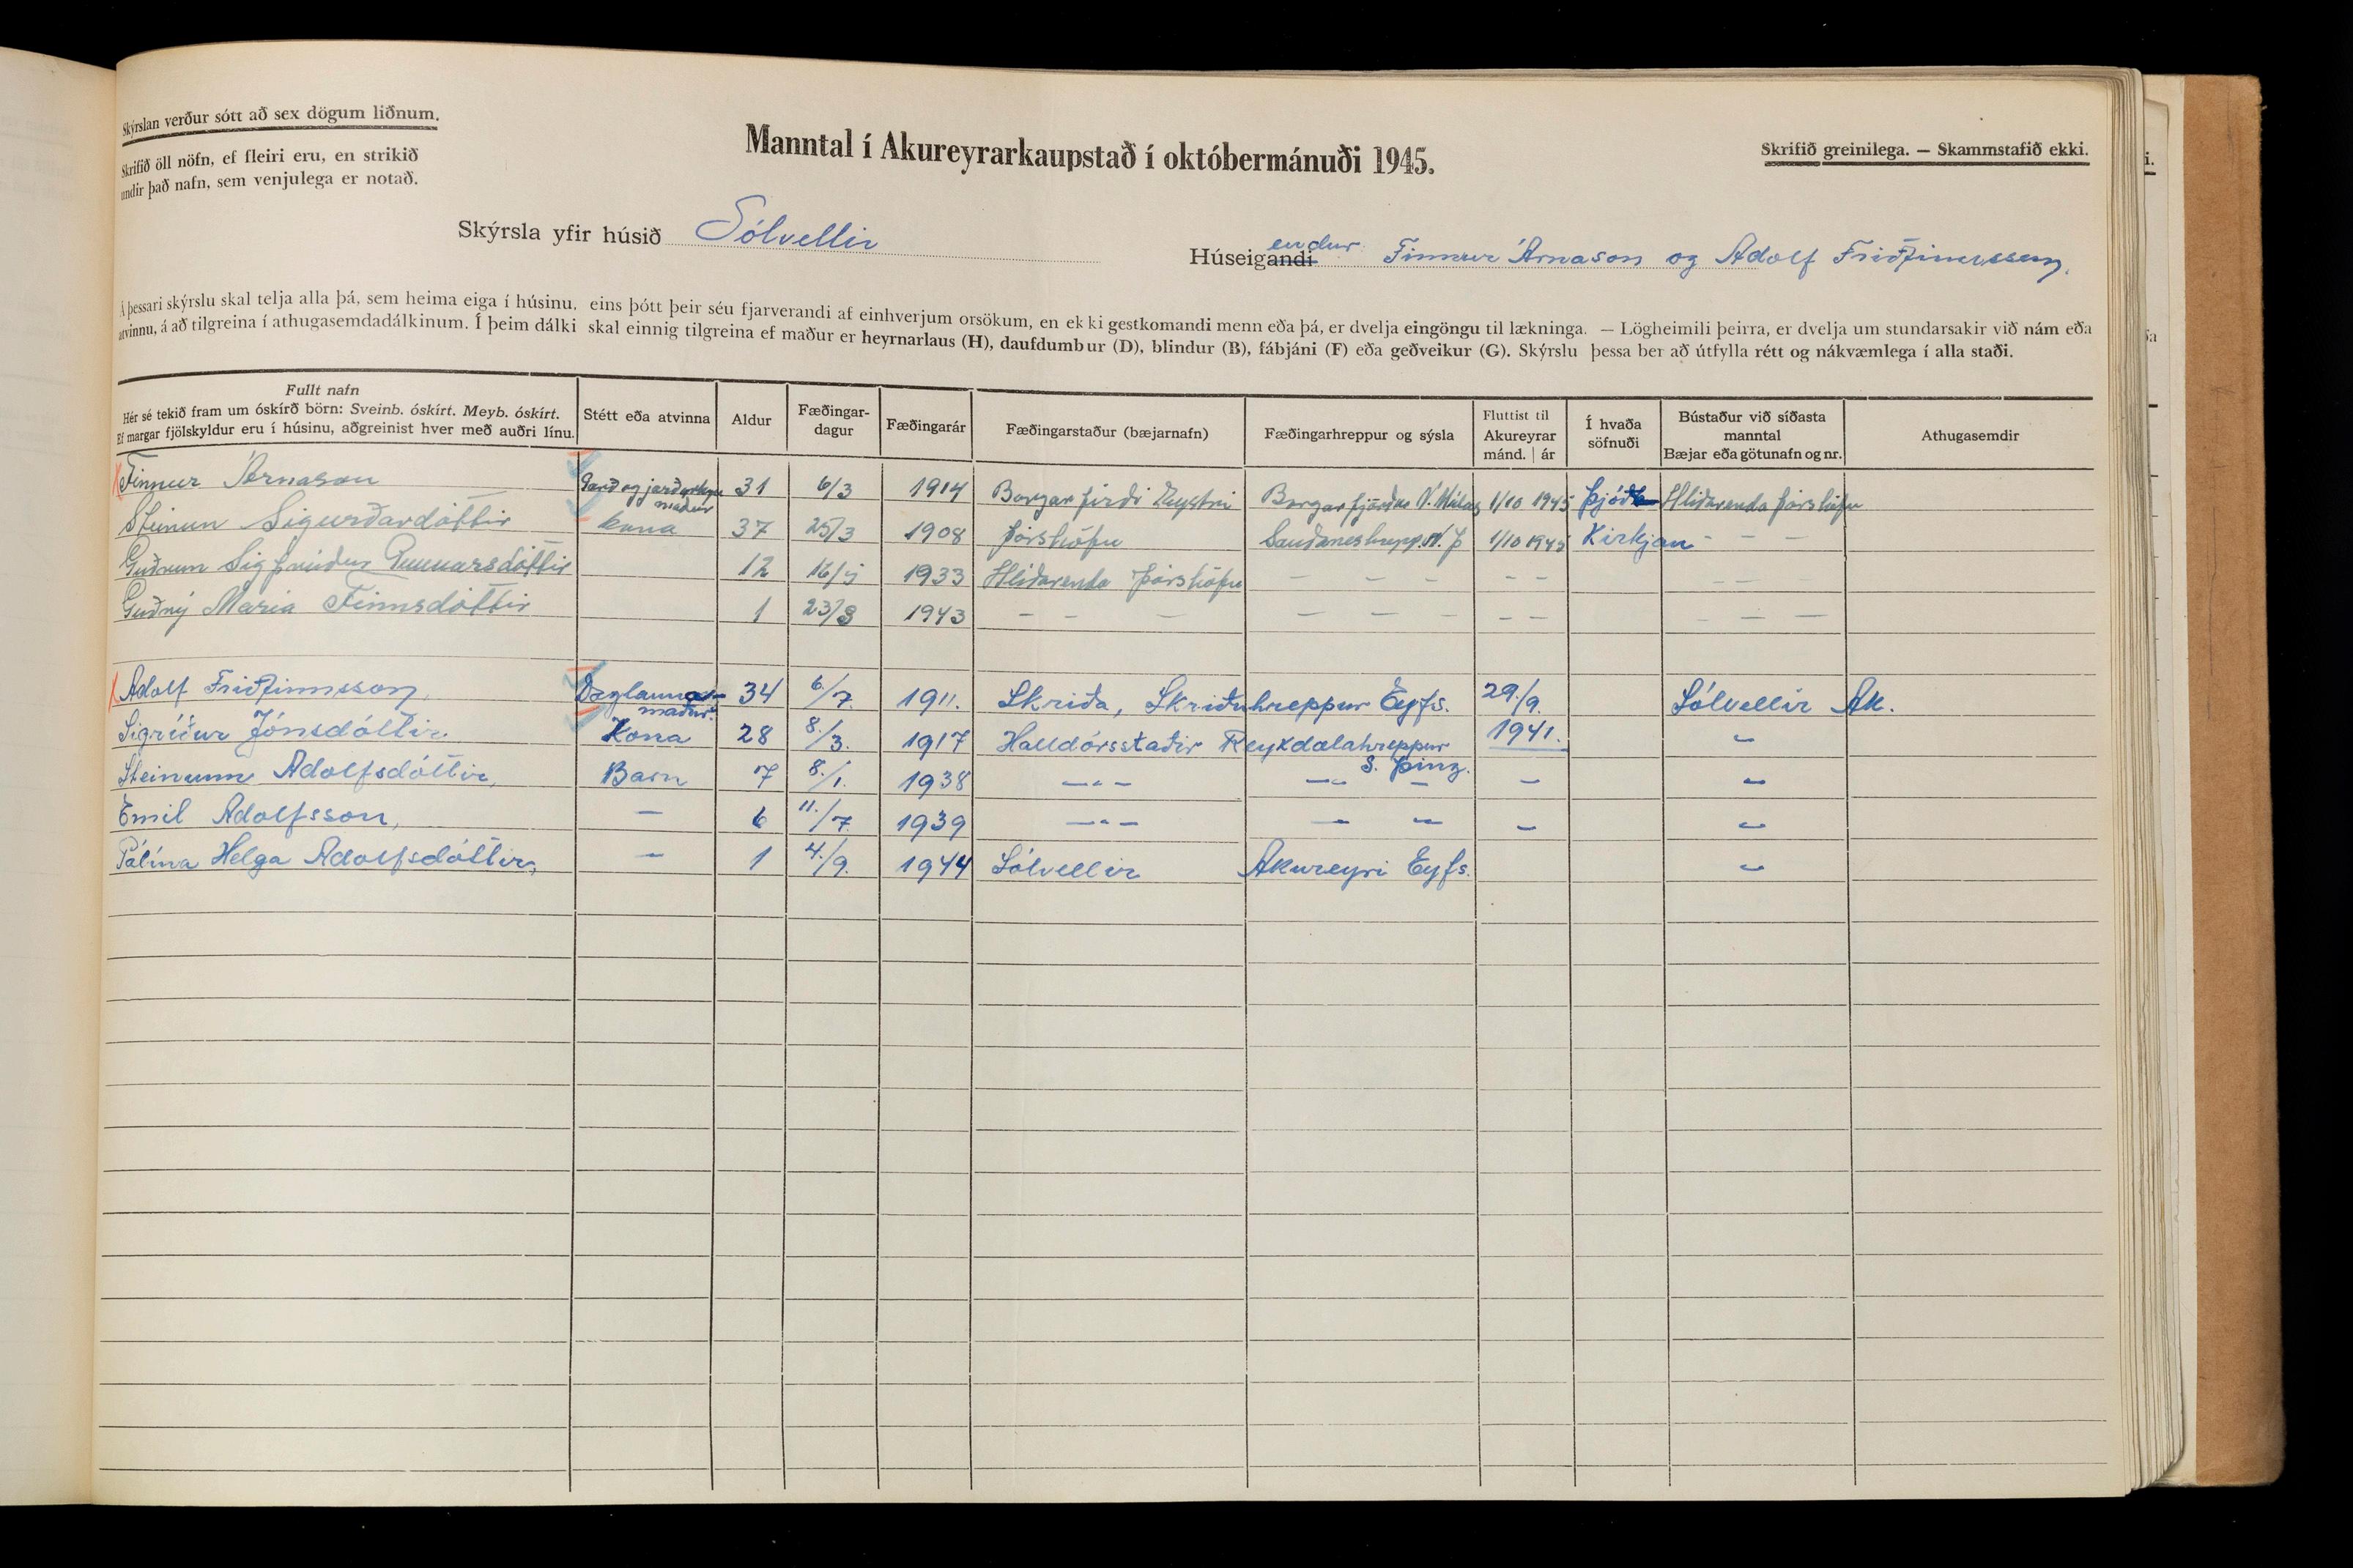 Skýrslan verður sótt að sex dögum liðnum.
Skrifið öll nöfn, ef fleiri eru, en strikið
undir það nafn, sem venjulega er notað.
Manntal í Akureyrarkaupstað í októbermánuði 1945.
Skrifið greinilega. — Skammstafið ekki.
Skýrsla yfir húsið Sólvellir
Húseigandi endur Finnur Árnason og Adolf Friðfinnsson.
Á þessari skýrslu skal telja alla þá, sem heima eiga í húsinu, eins þótt þeir séu fjarverandi af einhverjum orsökum, en ekki gestkomandi menn eða þá, er dvelja eingöngu til lækninga. — Lögheimili þeirra, er dvelja um stundarsakir við nám eða
atvinnu, á að tilgreina í athugasemdadálkinum. Í þeim dálki skal einnig tilgreina ef maður er heyrnarlaus (H), daufdumbur (D), blindur (B), fábjáni (F) eða geðveikur (G). Skýrslu þessa ber að útfylla rétt og nákvæmlega í alla staði.
Fullt nafn
Hér sé tekið fram um óskírð börn: Sveinb. óskírt. Meyb. óskírt.
Ef margar fjölskyldur eru í húsinu, aðgreinist hver með auðri línu.
Stétt eða atvinna
Aldur
Fæðingar-
dagur
Fæðingarár
Fæðingarstaður (bæjarnafn)
Fæðingarhreppur og sýsla
Fluttist til
Akureyrar
mánd. | ár
Í hvaða
söfnuði
Bústaður við síðasta
manntal
Bæjar eða götunafn og nr.
Athugasemdir
Finnur Árnason 31 6/3 1914 Borgarfirði Eystri Borgarfjarðar N. Múlas 1/10 1945 Þjóð Hlíðarenda Þórshöfn
maður
Steinun Sigurðardóttir kona 37 25/3 1908 Þórshöfn Sauðaneshrepp. N. Þ 1/10 1945 Kirkjan - — —
Guðrun Sigfríður Gunnarsdóttir 12 1933 Hlíðarenda Þórshöfn — — — — — — —
Guðný Maria Finnsdóttir 1 23/8 1943 — — — — — — — — — — —
Adolf Friðfinnsson. Daglauna- 34 6./7. 1911. Skriða, Skriðuhreppur Eyfs. 29./9. Sólvellir Ak.
maður.
Sigríður Jónsdóttir. Kona 28 8./3. 1917 Halldórsstaðir Reykdælahreppur 1941. "
S. Þing.
Steinunn Adolfsdóttir, Barn 7 8./1. 1938 —"— —"— — — "
Emil Adolfsson, — 6 11./7. 1939 —"— — " — "
Pálína Helga Adolfsdóttir, — 1 4./9. 1944 Sólvellir Akureyri Eyfs. "